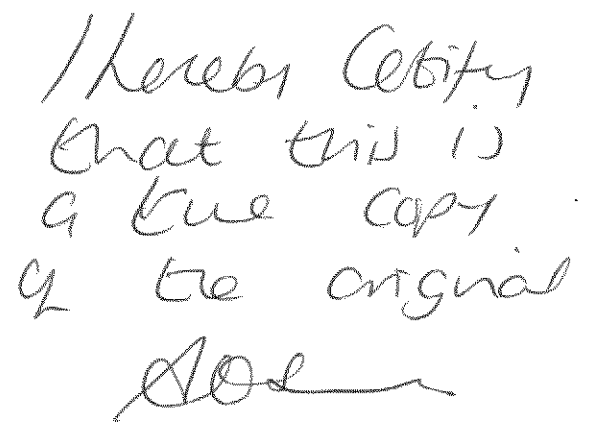 I hereby Certify
that this is
a true copy
of the original